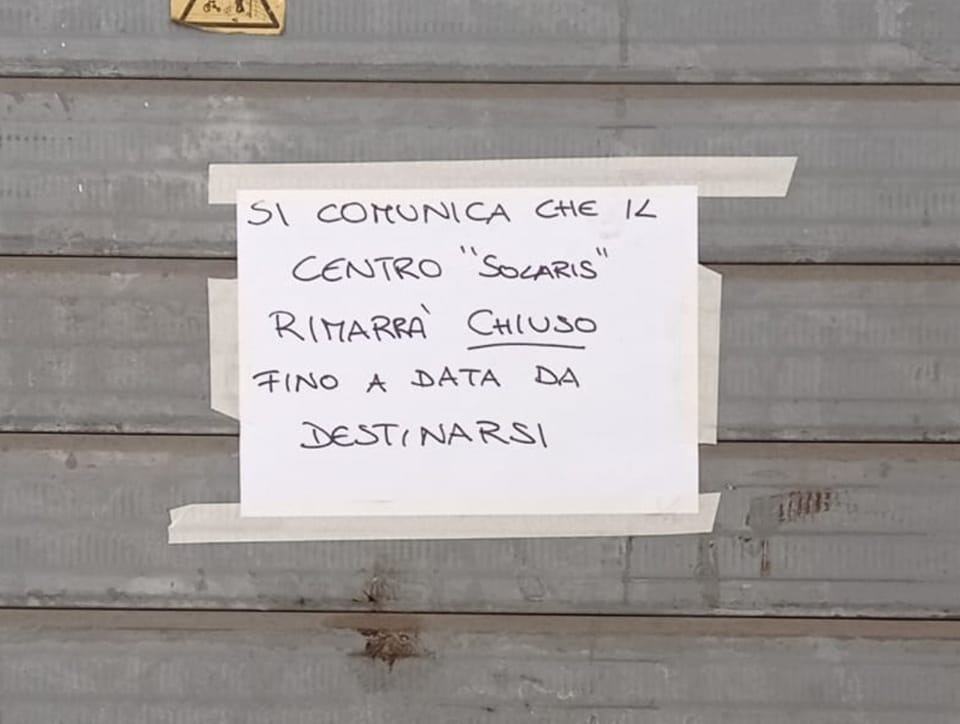 SI COMUNICA CHE IL
CENTRO "SOLARIS"
RIMARRÀ CHIUSO
FINO A DATA DA
DESTINARSI